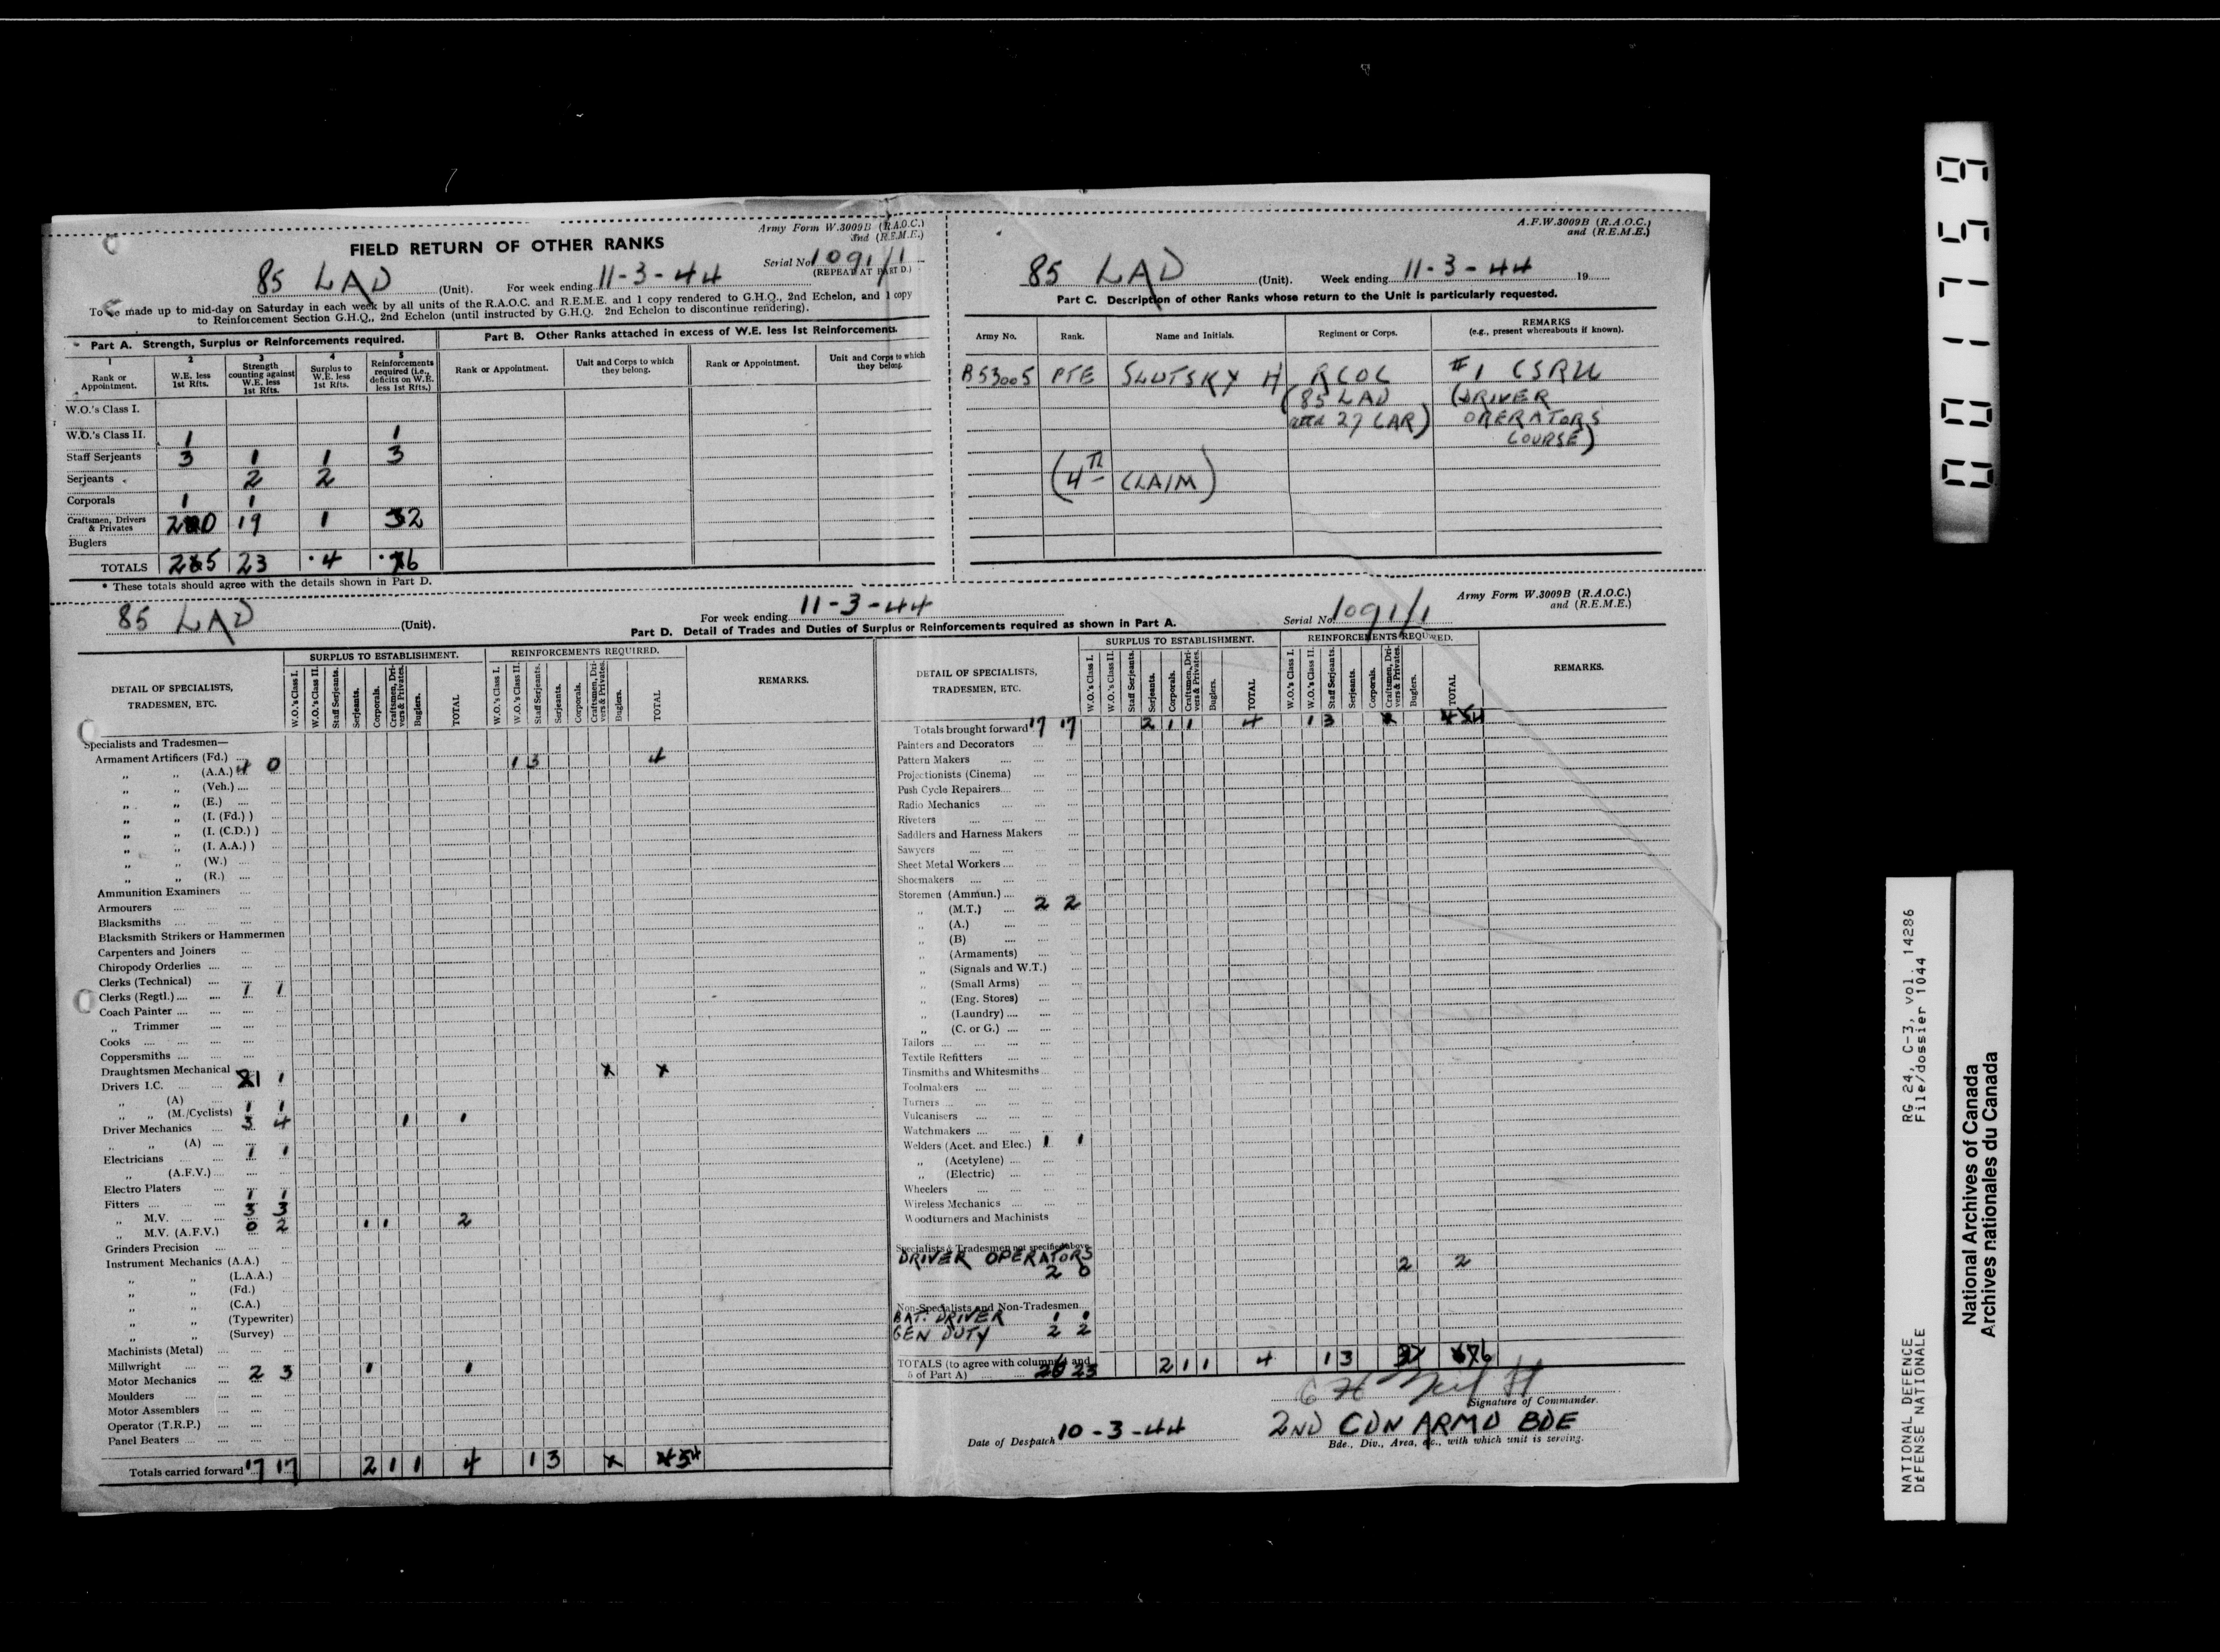 Army Form W.3009B (R.A.O.C.)
and (R.E.M.E.)
FIELD RETURN OF OTHER RANKS
Serial No. 1091/1
(REPEAT AT PART D.)
85 LAD (Unit). For week ending 11-3-44
To be made up to mid-day on Saturday in each week by all units of the R.A.O.C. and R.E.M.E. and 1 copy rendered to G.H.Q., 2nd Echelon, and 1 copy
to Reinforcement Section G.H.Q., 2nd Echelon (until instructed by G.H.Q. 2nd Echelon to discontinue rendering).
* Part A. Strength, Surplus or Reinforcements required.
1 2 3 4 5
Rank or Appointment. W.E. less 1st Rfts. Strength counting against W.E. less 1st Rfts. Surplus to W.E. less 1st Rfts. Reinforcements required (i.e., deficits on W.E. less 1st Rfts.)
W.O.'s Class I.
W.O.'s Class II. 1 1
Staff Serjeants 3 1 1 3
Serjeants 2 2
Corporals 1 1
Craftsmen, Drivers & Privates 20 19 1 2
Buglers
TOTALS 25 23 4 6
* These totals should agree with the details shown in Part D.
Part B. Other Ranks attached in excess of W.E. less 1st Reinforcements.
Rank or Appointment. Unit and Corps to which they belong. Rank or Appointment. Unit and Corps to which they belong.
A.F.W.3009B (R.A.O.C.)
and (R.E.M.E.)
85 LAD (Unit). Week ending 11-3-44 19
Part C. Description of other Ranks whose return to the Unit is particularly requested.
Army No. Rank. Name and Initials. Regiment or Corps. REMARKS (e.g., present whereabouts if known).
B53005 PTE SLUTSKY H RCOC #1 CSRU
(85 LAD (DRIVER
attd 27 CAR) OPERATORS
COURSE)
(4TH CLAIM)
85 LAD (Unit).
For week ending 11-3-44
Serial No. 1091/1
Army Form W.3009B (R.A.O.C.)
and (R.E.M.E.)
Part D. Detail of Trades and Duties of Surplus or Reinforcements required as shown in Part A.
DETAIL OF SPECIALISTS, TRADESMEN, ETC.
SURPLUS TO ESTABLISHMENT. REINFORCEMENTS REQUIRED. REMARKS.
W.O.'s Class I. W.O.'s Class II. Staff Serjeants. Serjeants. Corporals. Craftsmen, Drivers & Privates. Buglers. TOTAL
W.O.'s Class I. W.O.'s Class II. Staff Serjeants. Serjeants. Corporals. Craftsmen, Drivers & Privates. Buglers. TOTAL
Specialists and Tradesmen—
Armament Artificers (Fd.) 4 0 1 3 4
„ „ (A.A.)
„ „ (Veh.)
„ „ (E.)
„ „ (I. (Fd.) )
„ „ (I. (C.D.) )
„ „ (I. A.A.) )
„ „ (W.)
„ „ (R.)
Ammunition Examiners
Armourers
Blacksmiths
Blacksmith Strikers or Hammermen
Carpenters and Joiners
Chiropody Orderlies
Clerks (Technical)
Clerks (Regtl.) 1 1
Coach Painter
„ Trimmer
Cooks
Coppersmiths
Draughtsmen Mechanical
Drivers I.C. 1 1
„ (A)
„ „ (M./Cyclists) 1 1
Driver Mechanics 3 4 1 1
„ „ (A)
Electricians 1 1
„ (A.F.V.)
Electro Platers
Fitters 1 1
„ M.V. 3 3
„ M.V. (A.F.V.) 0 2 1 1 2
Grinders Precision
Instrument Mechanics (A.A.)
„ „ (L.A.A.)
„ „ (Fd.)
„ „ (C.A.)
„ „ (Typewriter)
„ „ (Survey)
Machinists (Metal)
Millwright
Motor Mechanics 2 3 1 1
Moulders
Motor Assemblers
Operator (T.R.P.)
Panel Beaters
Totals carried forward 17 17 2 1 1 4 1 3 4
DETAIL OF SPECIALISTS, TRADESMEN, ETC.
SURPLUS TO ESTABLISHMENT. REINFORCEMENTS REQUIRED. REMARKS.
W.O.'s Class I. W.O.'s Class II. Staff Serjeants. Serjeants. Corporals. Craftsmen, Drivers & Privates. Buglers. TOTAL
W.O.'s Class I. W.O.'s Class II. Staff Serjeants. Serjeants. Corporals. Craftsmen, Drivers & Privates. Buglers. TOTAL
Totals brought forward 17 17 2 1 1 4 1 3 4
Painters and Decorators
Pattern Makers
Projectionists (Cinema)
Push Cycle Repairers
Radio Mechanics
Riveters
Saddlers and Harness Makers
Sawyers
Sheet Metal Workers
Shoemakers
Storemen (Ammun.)
„ (M.T.) 2 2
„ (A.)
„ (B)
„ (Armaments)
„ (Signals and W.T.)
„ (Small Arms)
„ (Eng. Stores)
„ (Laundry)
„ (C. or G.)
Tailors
Textile Refitters
Tinsmiths and Whitesmiths
Toolmakers
Turners
Vulcanisers
Watchmakers
Welders (Acet. and Elec.) 1 1
„ (Acetylene)
„ (Electric)
Wheelers
Wireless Mechanics
Woodturners and Machinists
Specialists & Tradesmen not specified above
DRIVER OPERATORS 2 2
2 0
Non-Specialists and Non-Tradesmen.
BAT. DRIVER 1 1
GEN DUTY 2 2
TOTALS (to agree with columns 4 and 5 of Part A) 23 2 1 1 4 1 3 6
Signature of Commander.
Date of Despatch 10-3-44
2ND CDN ARMD BDE
Bde., Div., Area, &c., with which unit is serving.
001759
RG 24, C-3, vol. 14286
File/dossier 1044
NATIONAL DEFENCE
DÉFENSE NATIONALE
National Archives of Canada
Archives nationales du Canada